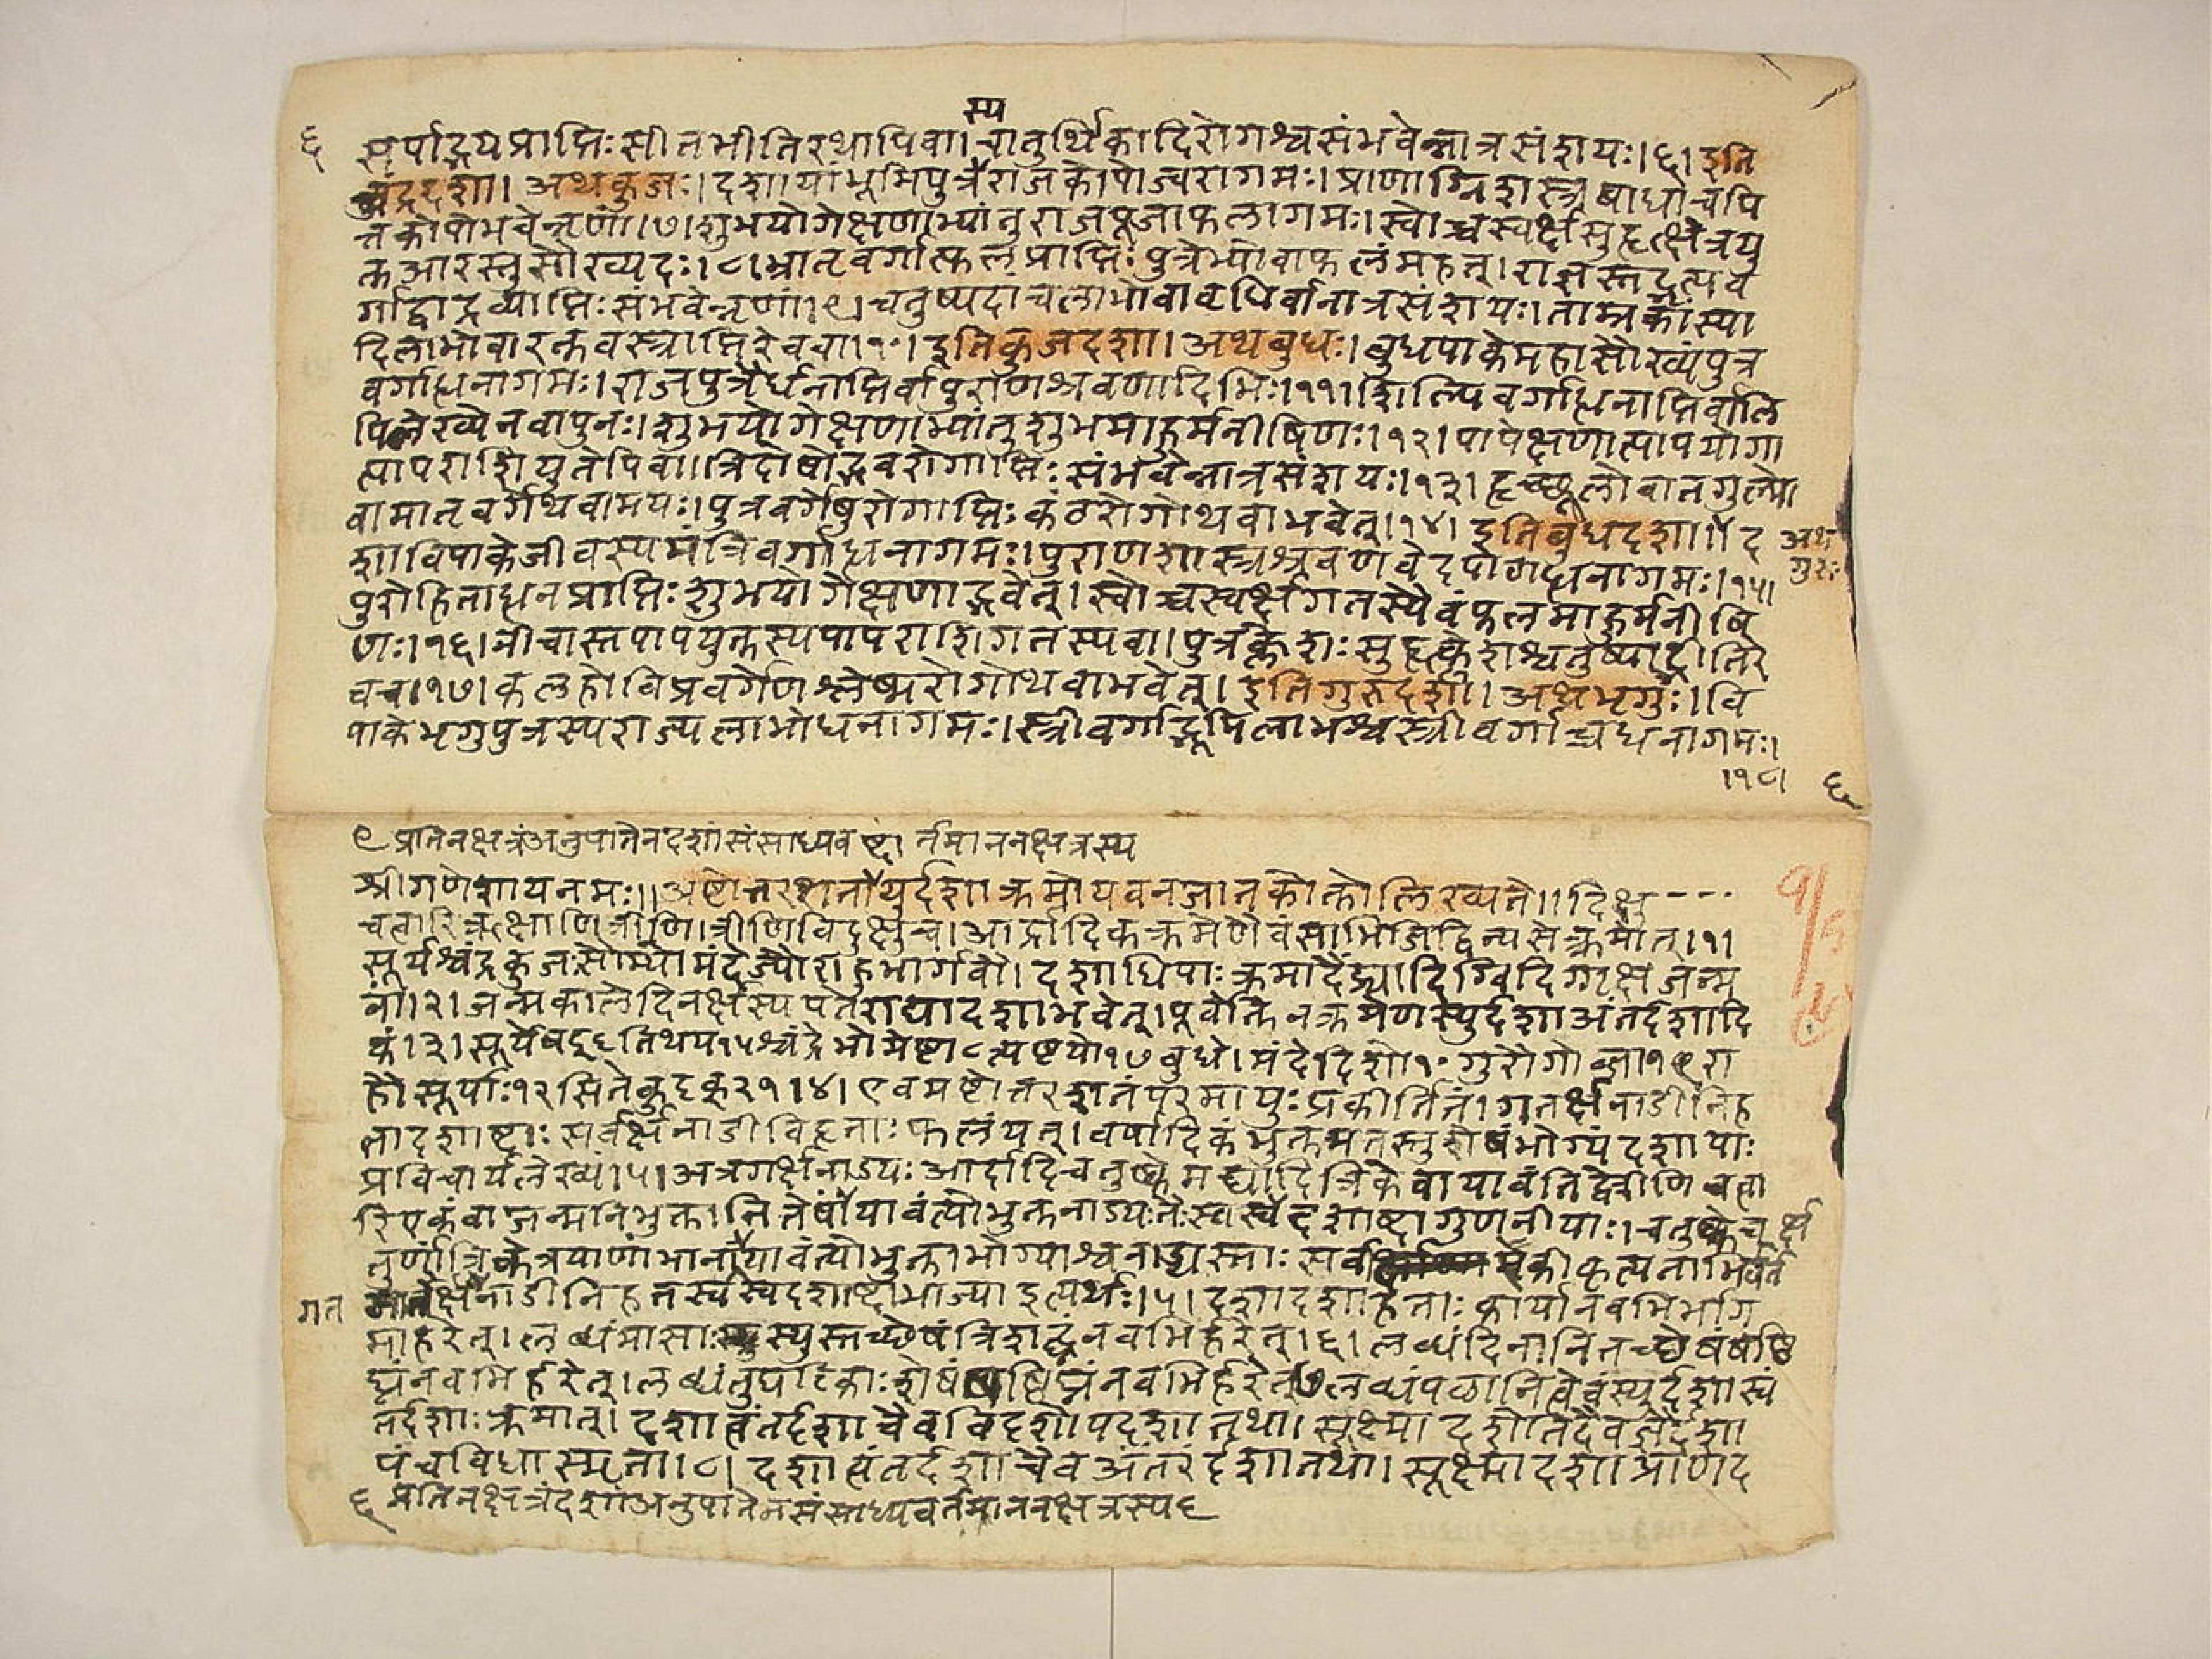 स्य
६ सर्पाद्भयप्राप्तिःसीतभीतिरथापिवा।चातुर्थिकादिरोगश्चसंभवेन्नात्रसंशयः।६।इति
चंद्रदशा।अथकुजः।दशायांभूमिपुत्रैराजकोपोज्वरागमः।प्राणाग्निशस्त्रबाधाचपि
त्तकोपोभवेन्नृणां।७।शुभयोगेक्षणाभ्यांतुराजपूजाफलागमः।स्वोच्चस्वर्क्षसुहृत्क्षेत्रयु
क्तआरस्तुसौख्यदः।८।भ्रातृवर्गात्फलंप्राप्तिःपुत्रेभ्योवाफलंमहत्।राज्ञस्तद्भृत्यव
र्गाद्वाद्रव्याप्तिःसंभवेन्नृणां।९।चतुष्पदाचलाभोवावधिर्वानात्रसंशयः।ताम्रकांस्या
दिलाभोवारक्तवस्त्राप्तिरेववा।१०।इतिकुजदशा।अथबुधः।बुधपाकेमहासौख्यंपुत्र
वर्गाद्धनागमः।राजपुत्रैर्धनाप्तिर्वापुराणश्रवणादिभिः।११।शिल्पिवर्गाद्धनाप्तिर्वालि
पिलेख्येनवापुनः।शुभयोगेक्षणाभ्यांतुशुभमाहुर्मनीषिणः।१२।पापेक्षणात्पापयोगा
त्पापराशियुतेपिवा।त्रिदोषोद्भवरोगाप्तिःसंभवेन्नात्रसंशयः।१३।हृच्छूलोवातगुल्मो
वामातृवर्गेथवामयः।पुत्रवर्गेषुरोगाप्तिःकंठरोगोथवाभवेत्।१४।इतिबुधदशा।द
अथ गुरुः
शाविपाकेजीवस्यमंत्रिवर्गाद्धनागमः।पुराणशास्त्रश्रवणवेदपाठाद्धनागमः।१५।
पुरोहिताद्धनप्राप्तिःशुभयोगेक्षणाद्भवेत्।स्वोच्चस्वर्क्षगतस्यैवंफलमाहुर्मनीषि
णः।१६।नीचास्तपापयुक्तस्यपापराशिगतस्यवा।पुत्रक्लेशःसुहृत्क्लेशश्चतुष्पाद्भीतिरे
वच।१७।कलहोविप्रवर्गेणश्लेष्मरोगोथवाभवेत्।इतिगुरुदशा।अथभृगुः।वि
पाकेभृगुपुत्रस्यराज्यलाभोधनागमः।स्त्रीवर्गाद्भूमिलाभश्चस्त्रीवर्गाच्चधनागमः।
।१८। ६
९ प्रतिनक्षत्रंअनुपातेनदशांसंसाध्यव र्तमाननक्षत्रस्य
श्रीगणेशायनमः॥अष्टोत्तरशतायुर्दशाक्रमोयवनजातकोक्तोलिख्यते॥दिक्षु
चत्वारिऋक्षाणित्रीणित्रीणिविदिक्षुच।आर्द्रादिकक्रमेणैवंसाभिजिद्विन्यसेत्क्रमात्।१।
सूर्यश्चंद्रकुजःसौम्योमंदेज्यौराहुभार्गवौ।दशाधिपाःक्रमादैंद्र्यादिग्विदिगृक्षजन्म
नां।२।जन्मकालेदिनर्क्षस्यपतेराद्यादशाभवेत्।पूर्वोक्तेनक्रमेणस्युर्दशाअंतर्दशादि
कं।३।सूर्येषद्६तिथय१५श्चंद्रेभौमेष्टा८त्यष्टयो१७बुधे।मंदेदिशो१०गुरौगोब्जा१९रा
हौसूर्याः१२सितेकुदृक्२१।४।एवमष्टोत्तरशतंपरमायुःप्रकीर्तितं।गतर्क्षनाडीनिह
तादशाब्दाःसर्वर्क्षनाडीविहृताःफलंयत्।वर्षादिकंभुक्तमतस्तुशेषंभोग्यंदशायाः
प्रविचार्यलेख्यं।५।अत्रगर्क्षनाड्यःआर्द्रादिचतुष्केमघादित्रिकेवायावंतिद्वेत्रीणिचत्वा
रिएकंवाजन्मनिभुक्तानितेषांयावंत्योभुक्तनाड्यःतैःस्वस्वदशाब्दागुणनीयाः।चतुष्केच र्क्ष
तुर्णांत्रिकेत्रयाणांभानांयावंत्योभुक्ताभोग्याश्चनाड्यस्ताःसर्वर्क्षएकीकृत्यताभिर्वर्त
गत मानर्क्षनाडीनिहतस्वस्वदशाब्दोभाज्याइत्यर्थः।५।दशादशाहताःकार्यानवभिर्भाग
माहरेत्।लब्धंमासाःस्युस्तच्छेषंत्रिंशद्घ्नंनवभिर्हरेत्।६।लब्धंदिनानितच्छेषंषष्टि
घ्नंनवभिर्हरेत्।लब्धंतुघटिकाःशेषंषष्टिघ्नंनवभिर्हरेत्७लब्धंपलानित्वेवंस्युर्दशास्वं
तर्दशाःक्रमात्।दशात्वंतर्दशाचैवविदशोपदशातथा।सूक्ष्मादशेतिदैवज्ञैर्दशा
पंचविधास्मृता।८।दशात्वंतर्दशाचैवअंतरंर्दशातथा।सूक्ष्मादशाप्राणद
६ प्रतिनक्षत्रंदशांअनुपातेनसंसाध्यवर्तमाननक्षत्रस्य६